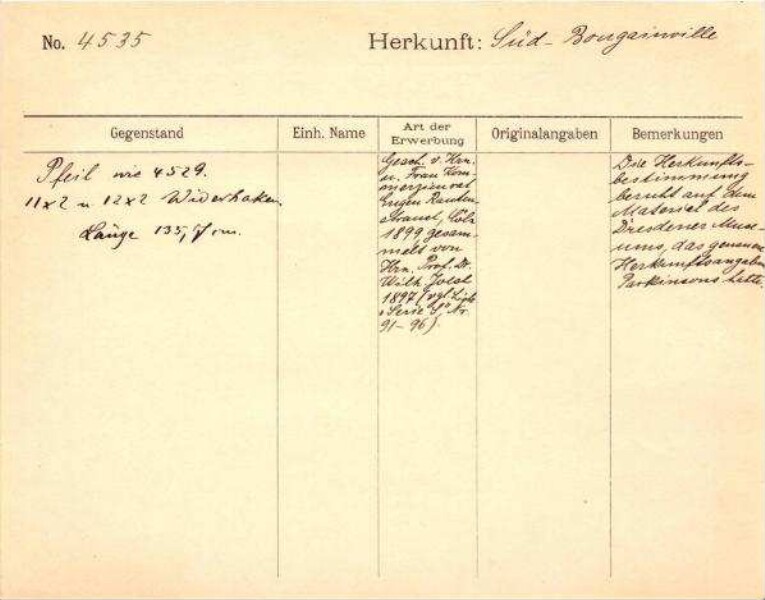 No. 4535
Herkunft: Süd-Bougainville
Gegenstand
Einh. Name
Art der
Erwerbung
Originalangaben
Bemerkungen
Pfeil wie 4529.
11x2 u 12x2 Widerhaken.
Länge 135,7 cm.
Gesch. v. Hrn.
u. Frau Kom-
merzienrat
Eugen Rauten-
strauch, Cöln
1899 gesam-
melt von
Hrn. Prof. Dr.
Wilh. Joest
1897 (vgl.
Serie S, Nr.
91-96).
Die Herkunfts-
bestimmung
beruht auf dem
Material des
Dresdener Muse-
ums, das genauere
Herkunftsangaben
Parkinsons hatte.